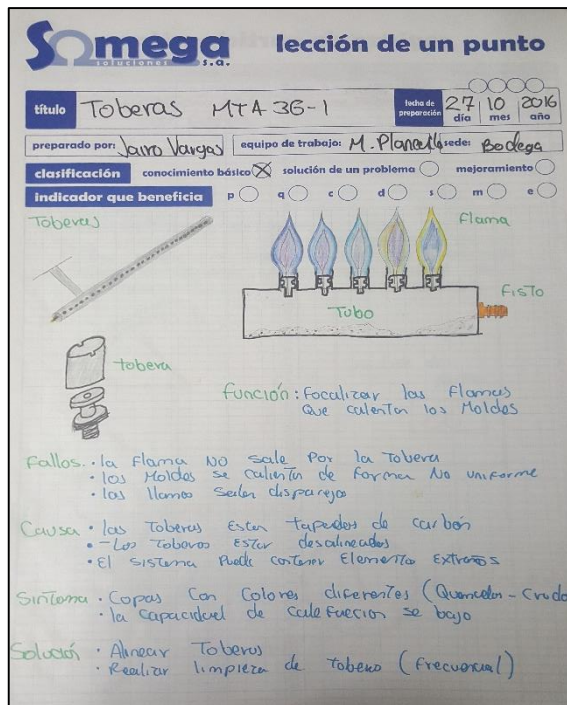 Somega
soluciones s.a.
lección de un punto
título Toberas MTA 36-1 fecha de preparación 27 10 2016
día mes año
preparado por: Jairo Vargas equipo de trabajo: M. Planeta sede: Bodega
clasificación conocimiento básico solución de un problema mejoramiento
indicador que beneficia p q c d s m e
Toberas
Flama
Tubo
Fisto
tobera
función: Focalizar las Flamas
Que calentan los Moldes
Fallos. • la Flama No sale Por la Tobera
• los Moldes se calientan de Forma No uniforme
• las llamas salen disparejas
Causa • las Toberas Estan tapadas de carbón
• Las Toberas Estar desalineadas
• El sistema Puede contener Elementos Extraños
Sintoma • Copas Con Colores diferentes (Quemados - Crudo
• la capacidad de calefaccion es bajo
Solución • Alinear Toberas
• Realizar limpieza de Toberas (frecuencial)